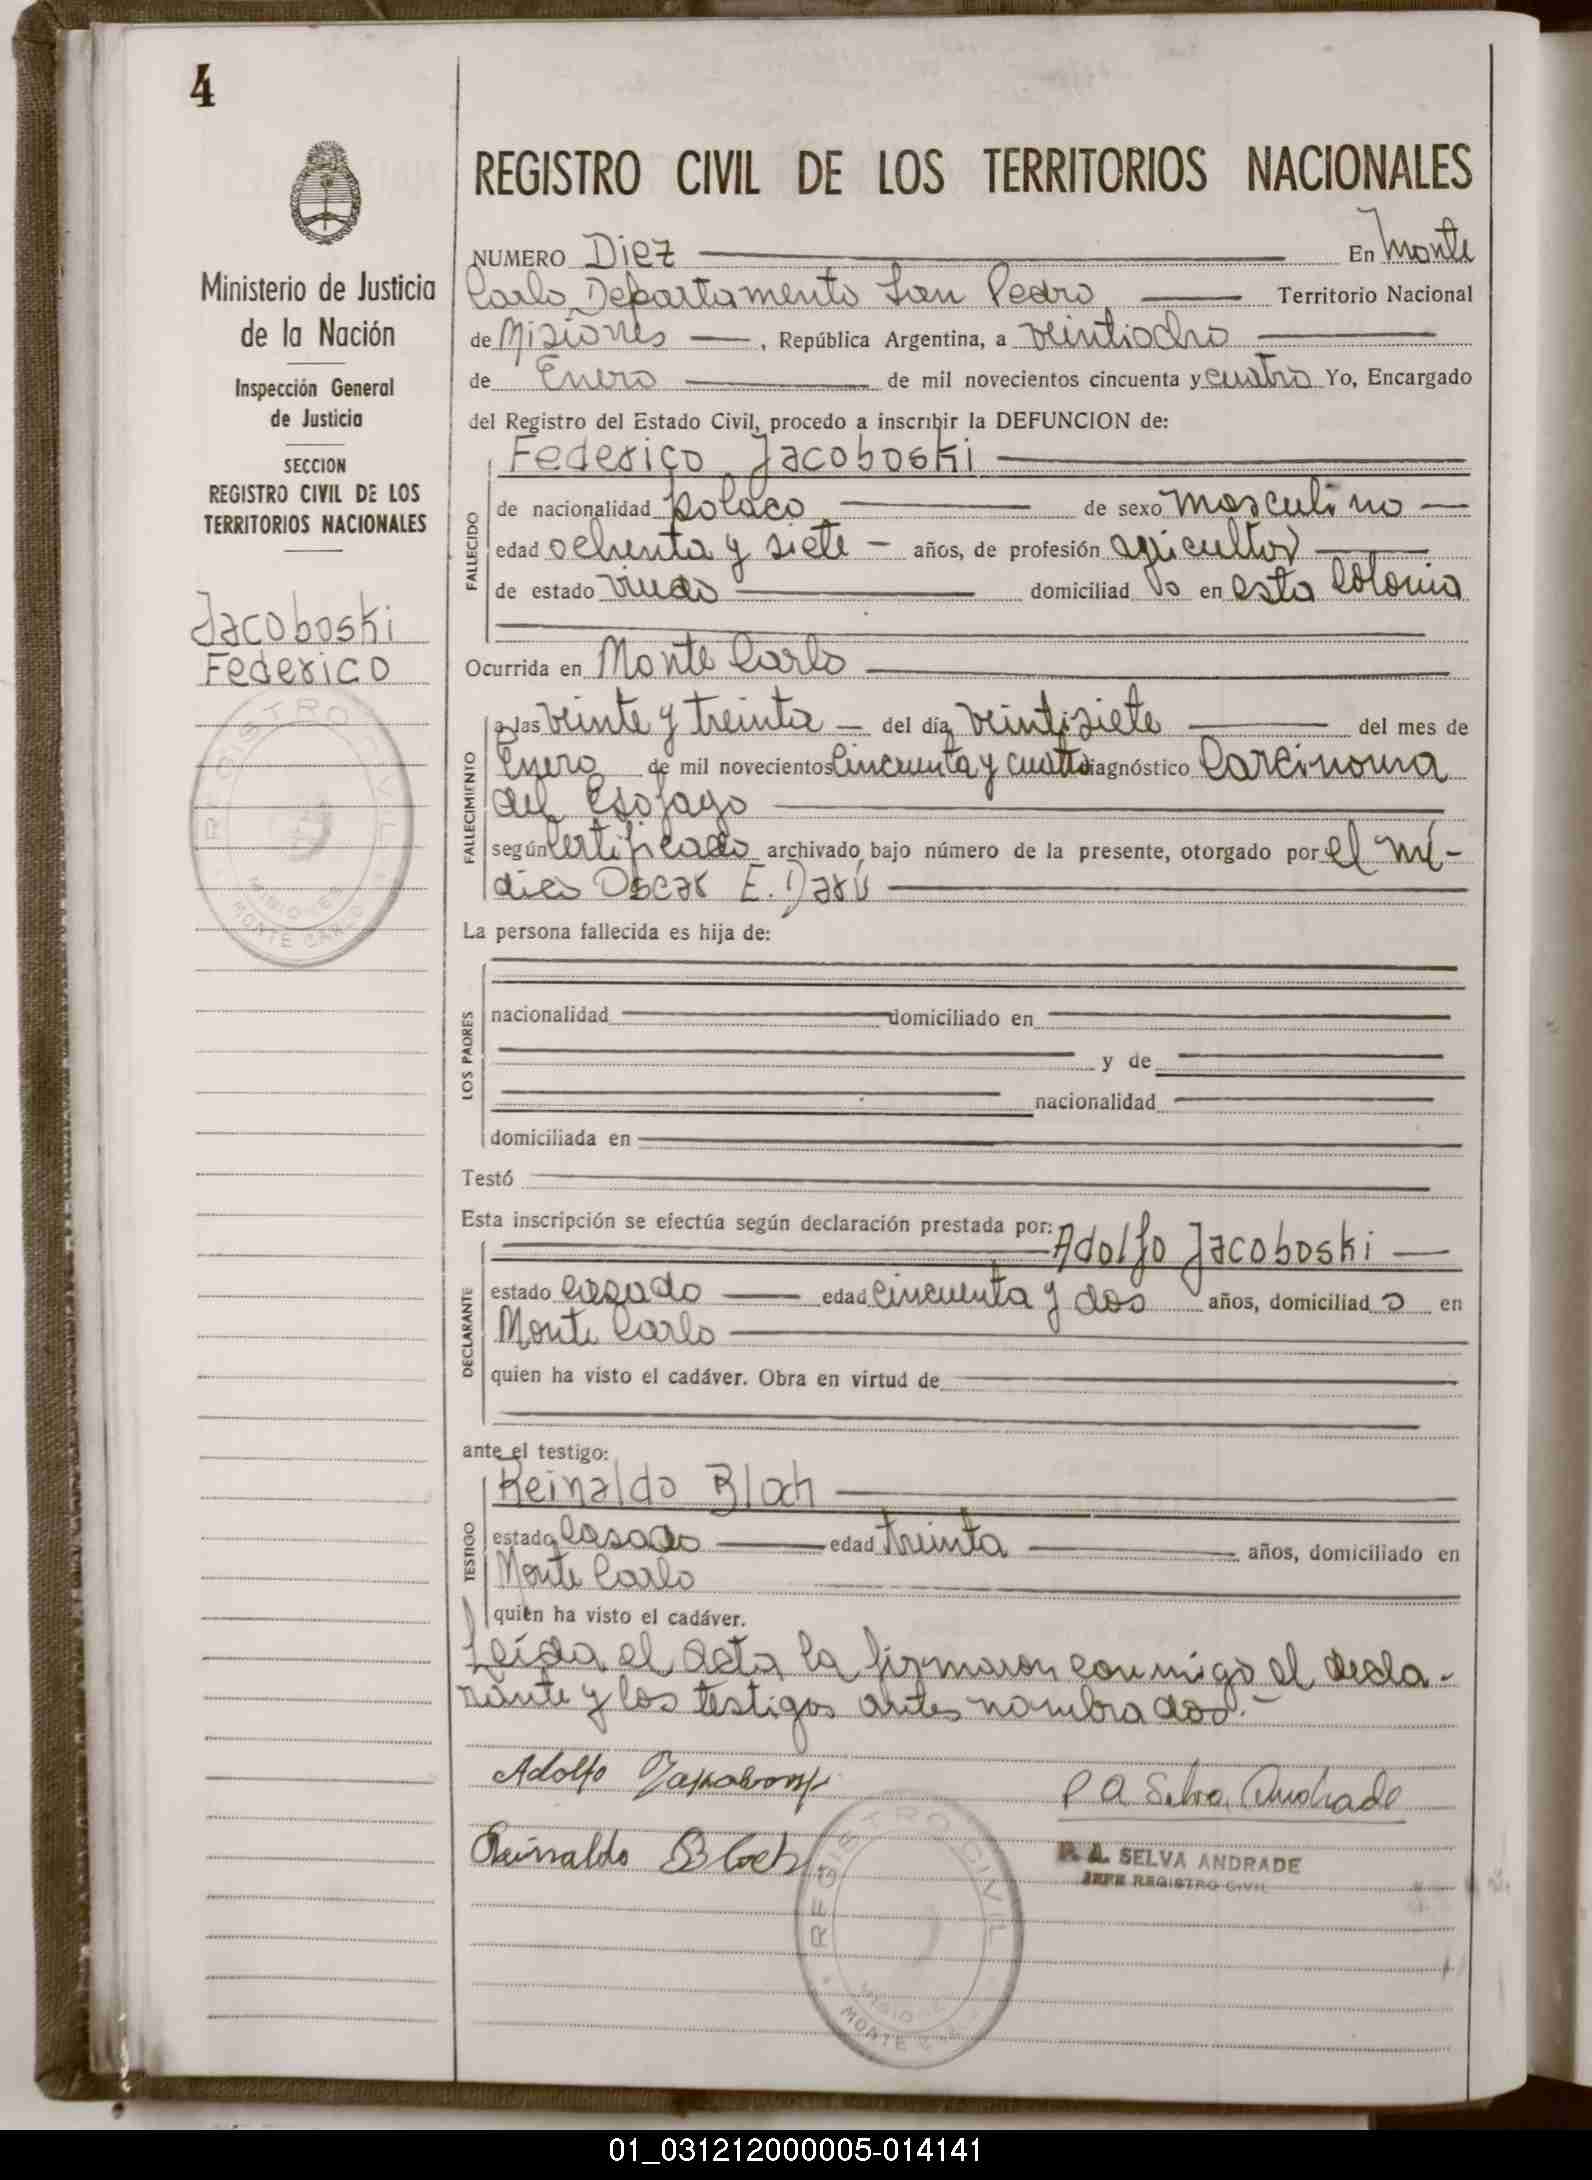 4
REGISTRO CIVIL DE LOS TERRITORIOS NACIONALES
Ministerio de Justicia
de la Nación
Inspección General
de Justicia
SECCION
REGISTRO CIVIL DE LOS
TERRITORIOS NACIONALES
Jacoboski
Federico
REGISTRO CIVIL
MISIONES
MONTE CARLO
NUMERO Diez En Monte
Carlo Departamento San Pedro Territorio Nacional
de Misiones, República Argentina, a veintiocho
de Enero de mil novecientos cincuenta y cuatro Yo, Encargado
del Registro del Estado Civil, procedo a inscribir la DEFUNCION de:
Federico Jacoboski
FALLECIDO
de nacionalidad polaco de sexo masculino
edad ochenta y siete años, de profesión agricultor
de estado viudo domiciliad o en esta Colonia
Ocurrida en Monte Carlo
FALLECIMIENTO
a las veinte y treinta del día veintisiete del mes de
Enero de mil novecientos Cincuenta y cuatro diagnóstico Carcinoma
del Esofago
según Certificado archivado bajo número de la presente, otorgado por el mé-
dico Oscar E. Darú
La persona fallecida es hija de:
LOS PADRES
nacionalidad domiciliado en
y de
nacionalidad
domiciliada en
Testó
Esta inscripción se efectúa según declaración prestada por: Adolfo Jacoboski
DECLARANTE
estado casado edad cincuenta y dos años, domiciliad o en
Monte Carlo
quien ha visto el cadáver. Obra en virtud de
ante el testigo:
Reinaldo Bloch
TESTIGO
estado casado edad treinta años, domiciliado en
Monte Carlo
quien ha visto el cadáver.
Leída el acta, la firmaron conmigo el decla-
rante y los testigos antes nombrados.-
Adolfo
P A Selva Andrade
Reinaldo Bloch
P. A. SELVA ANDRADE
JEFE REGISTRO CIVIL
REGISTRO CIVIL
MISIONES
MONTE CARLO
01_031212000005-014141